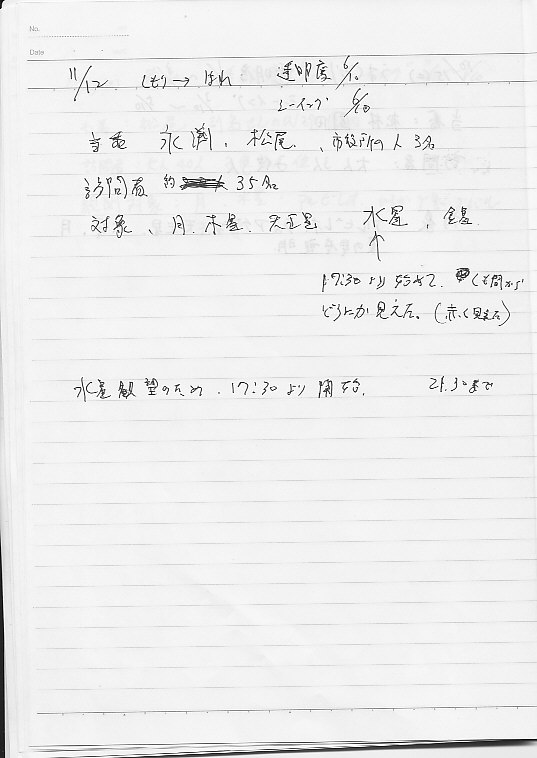 No.
Date
11/12 くもり→はれ 透明度 6/10
シーイング 6/10
当番 永渕、松尾、市役所の人3名
訪問者 約 35名
対象、月、木星、天王星 水星、金星
↑
17:30より始めて、くも間から
どうにか見えた。(赤く見えた)
水星観望のため、17:30より開始、 21.30まで